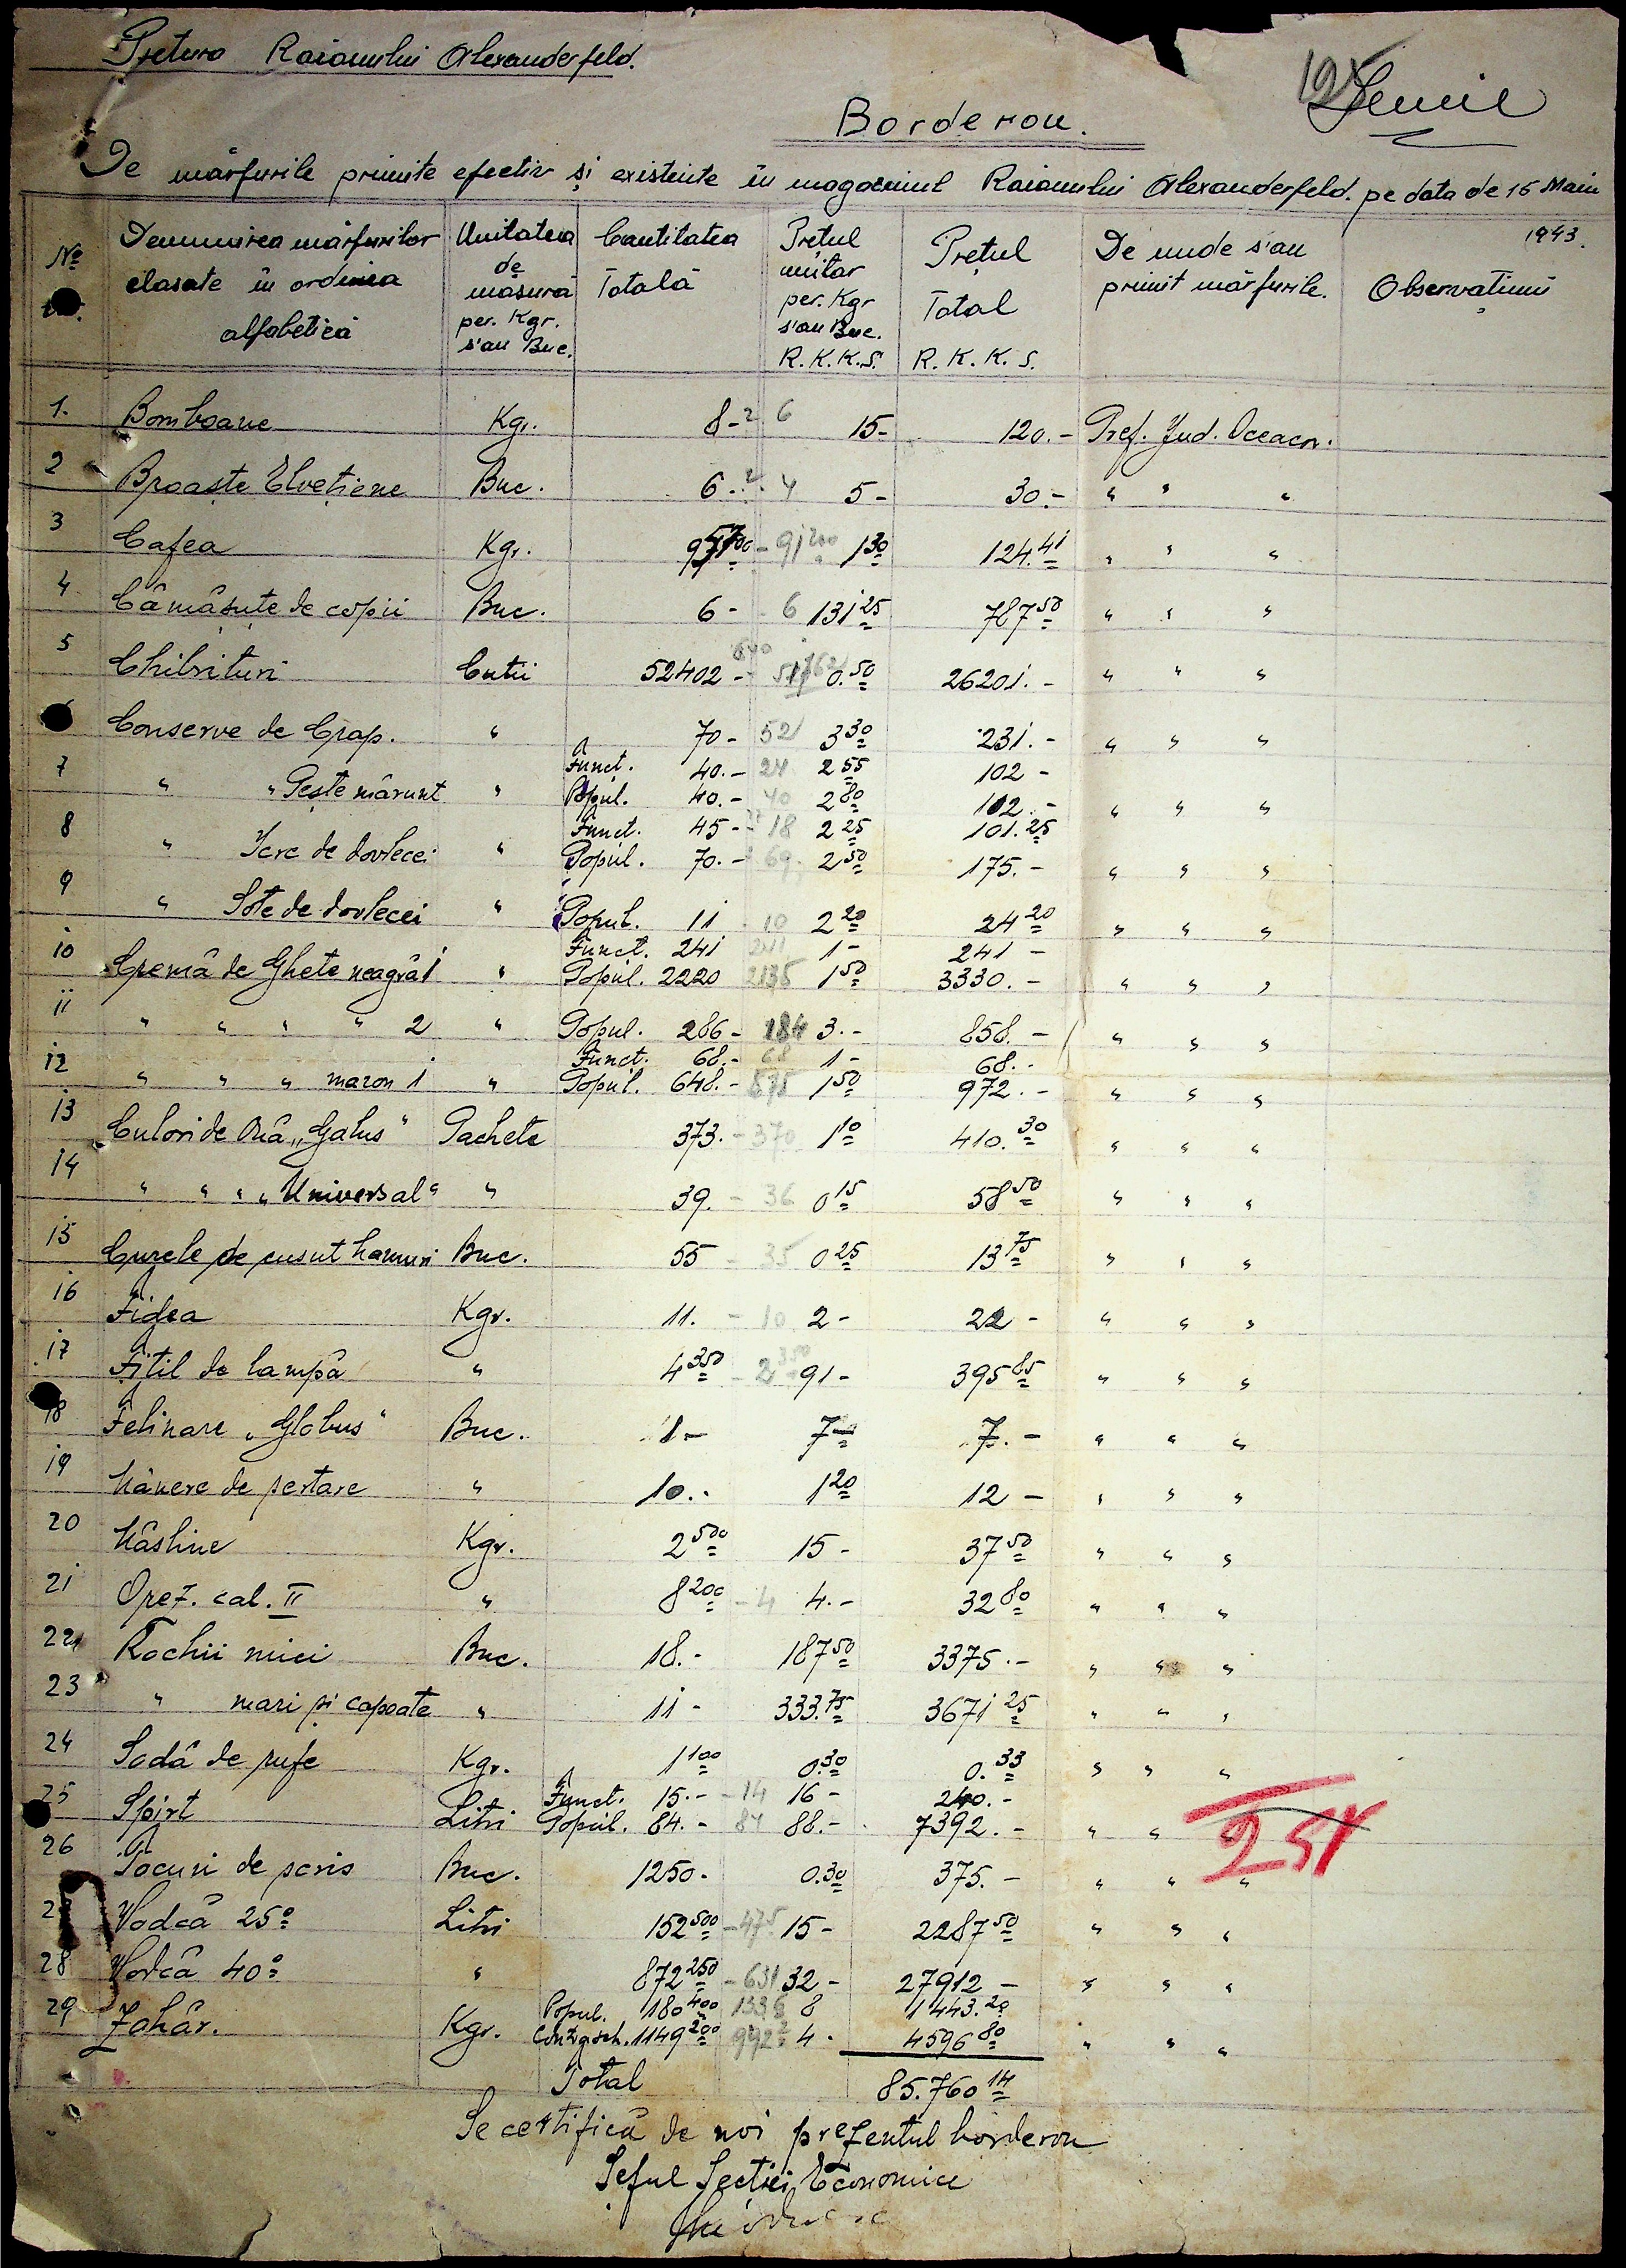 Pretura Raionului Alexanderfeld.
Borderou.
De mărfurile primite efectiv și existente în magazinul Raionului Alexanderfeld. pe data de 15 Maiu 1943.
No Denumirea mărfurilor clasate în ordinea alfabetică Unitatea de măsură per. Kgr. s'au Buc. Cantitatea Totală Prețul unitar per. Kgr s'au Buc. R.K.K.S. Prețul Total R.K.K.S. De unde s'au primit mărfurile. Observațiuni
1. Bomboane Kgr. 8- 2 6 15- 120.- Pref. Jud. Oceacov.
2 Broaște Elvețiene Buc. 6.- 2 4 5- 30.- " " "
3 Cafea Kgr. 95700 - 91200 130 124.41 " " "
4 Cămășuțe de copii Buc. 6- 6 13125 78750 " " "
5 Chibrituri Cutii 52402- 640 0.50 26201.- " " "
Conserve de Crap. " 70- 52 330 231.- " " "
7 " " Pește mărunt " Funct. 40.- 24 255 102-
Popul. 40.- 40 280 112.- " " "
8 " Icre de dovlecei " Funct. 45- 18 225 101.25
Popul. 70.- 69 250 175.- " " "
9 " Sote de dovlecei " Popul. 11 10 220 2420 " " "
10 Cremă de Ghete neagră 1 " Funct. 241 1- 241-
Popul. 2220 2135 150 3330.- " " "
11 " " " " 2 " Popul. 286- 184 3.- 858.- " " "
12 " " " maron 1 " Funct. 68.- 68 1- 68.-
Popul. 648.- 150 972.- " " "
13 Culori de Ouă „Galus" Pachete 373.- 370 110 410.30 " " "
14 " " " „Universal" " 39.- 36 015 5850 " " "
15 Curele de cusut hamuri Buc. 55 - 35 025 1375 " " "
16 Fidea Kgr. 11. - 10 2- 22- " " "
17 Fitil de lampă " 4350 - 2350 91- 39585 " " "
18 Felinare „Globus" Buc. 1- 7- 7.- " " "
19 Mânere de pertare " 10.- 120 12- " " "
20 Măsline Kgr. 2500 15- 3750 " " "
21 Orez. cal. II " 8200 - 4 4.- 3280 " " "
22 Rochii mici Buc. 18.- 18750 3375.- " " "
23 " mari și capoate " 11- 333.75 367125 " " "
24 Sodă de rufe Kgr. 1100 0.30 0.33 " " "
25 Spirt Litri Funct. 15.- - 14 16- 240.-
Popul. 84.- 84 88.- 7392.- " " "
26 Tocuri de scris Buc. 1250- 0.30 375.- " " "
Vodcă 25° Litri 152500 - 475 15- 228750 " " "
28 Vodcă 40° " 872250 - 631 32- 27912- " " "
29 Zahăr. Kgr. Popul. 180400 8 1443.20
1149200 4. 459680 " " "
Total 85.76014
Se certifică de noi prezentul borderou
Șeful Secției Economice